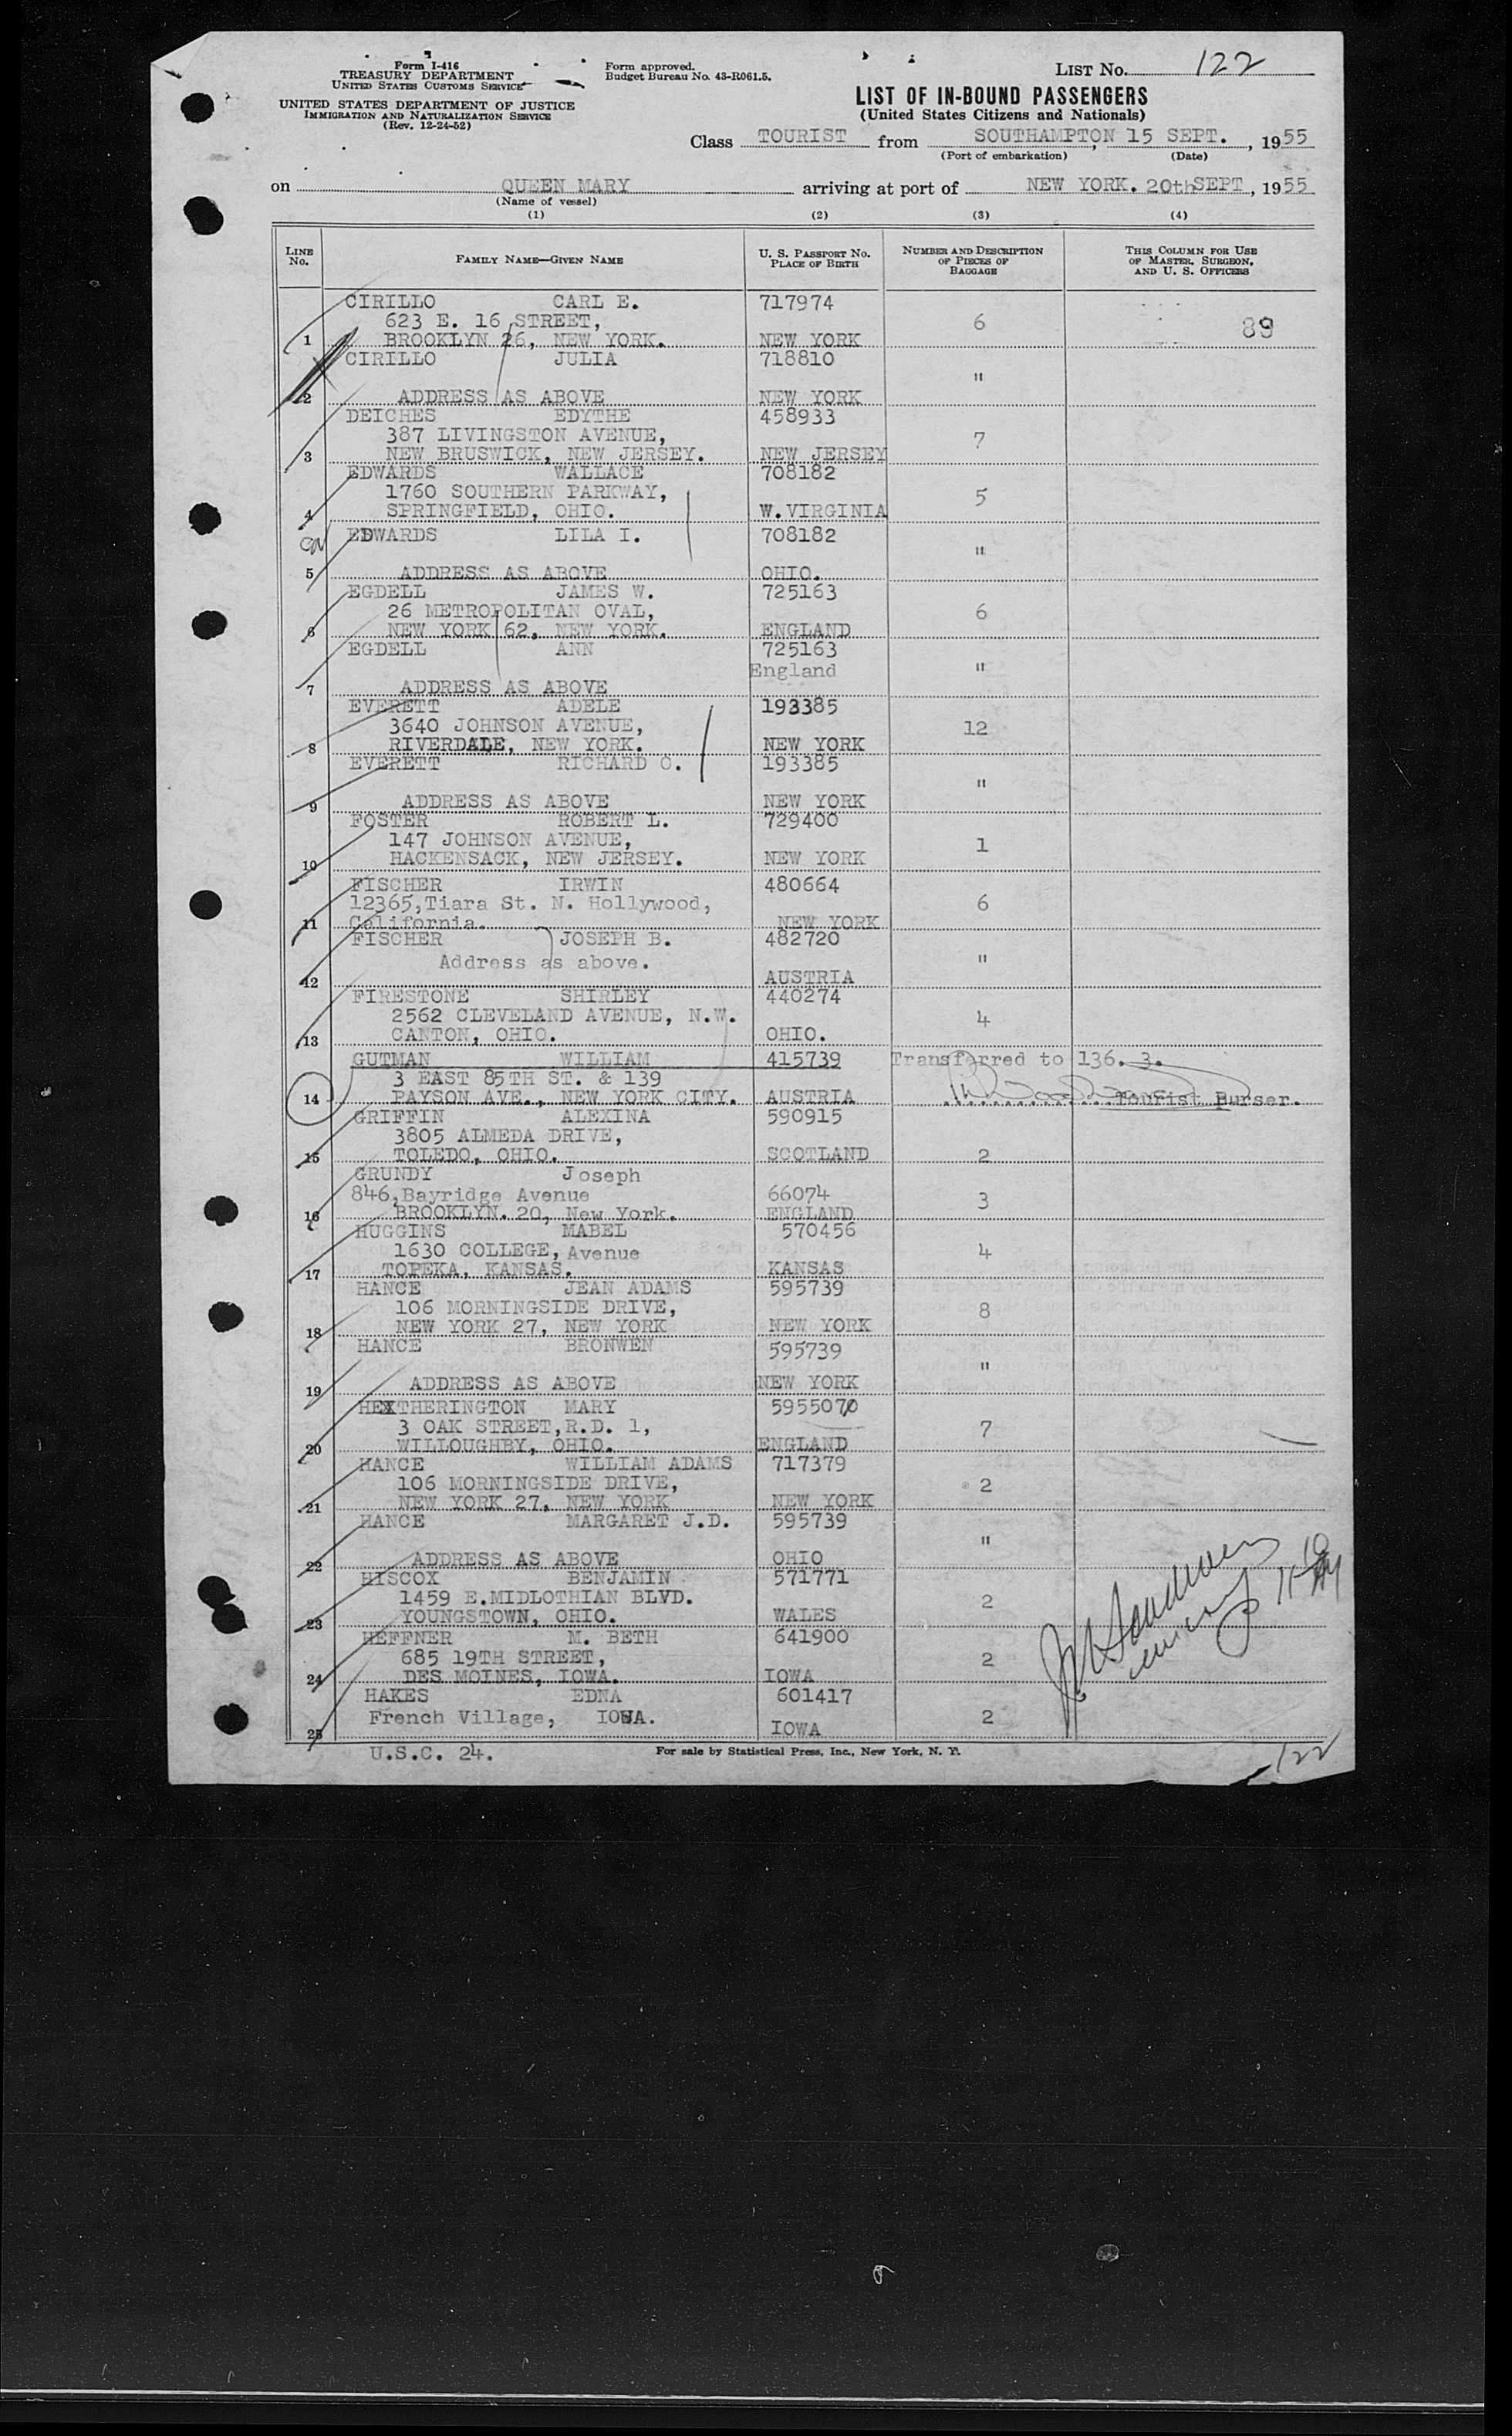 Form I-416
TREASURY DEPARTMENT
UNITED STATES CUSTOMS SERVICE
UNITED STATES DEPARTMENT OF JUSTICE
IMMIGRATION AND NATURALIZATION SERVICE
(Rev. 12-24-52)
Form approved.
Budget Bureau No. 43-R061.5.
LIST No. 122
LIST OF IN-BOUND PASSENGERS
(United States Citizens and Nationals)
Class TOURIST from SOUTHAMPTON, 15 SEPT., 1955
(Port of embarkation) (Date)
on QUEEN MARY arriving at port of NEW YORK. 20thSEPT, 1955
(Name of vessel)
(1) (2) (3) (4)
LINE No. FAMILY NAME—GIVEN NAME U. S. PASSPORT No. PLACE OF BIRTH NUMBER AND DESCRIPTION OF PIECES OF BAGGAGE THIS COLUMN FOR USE OF MASTER, SURGEON, AND U. S. OFFICERS
CIRILLO CARL E. 717974
623 E. 16 STREET, 6 89
1 BROOKLYN 26, NEW YORK. NEW YORK
CIRILLO JULIA 718810
"
2 ADDRESS AS ABOVE NEW YORK
DEICHES EDYTHE 458933
387 LIVINGSTON AVENUE, 7
3 NEW BRUSWICK, NEW JERSEY. NEW JERSEY
EDWARDS WALLACE 708182
1760 SOUTHERN PARKWAY, 5
4 SPRINGFIELD, OHIO. W.VIRGINIA
EDWARDS LILA I. 708182
"
5 ADDRESS AS ABOVE OHIO.
EGDELL JAMES W. 725163
26 METROPOLITAN OVAL, 6
6 NEW YORK 62, NEW YORK. ENGLAND
EGDELL ANN 725163
England "
7 ADDRESS AS ABOVE
EVERETT ADELE 193385
3640 JOHNSON AVENUE, 12
8 RIVERDALE, NEW YORK. NEW YORK
EVERETT RICHARD C. 193385
"
9 ADDRESS AS ABOVE NEW YORK
FOSTER ROBERT L. 729400
147 JOHNSON AVENUE, 1
10 HACKENSACK, NEW JERSEY. NEW YORK
FISCHER IRWIN 480664
12365,Tiara St. N. Hollywood, 6
11 California. NEW YORK
FISCHER JOSEPH B. 482720
Address as above. "
12 AUSTRIA
FIRESTONE SHIRLEY 440274
2562 CLEVELAND AVENUE, N.W. 4
13 CANTON, OHIO. OHIO.
GUTMAN WILLIAM 415739 Transferred to 136. 3.
3 EAST 85TH ST. & 139
14 PAYSON AVE., NEW YORK CITY. AUSTRIA Tourist Purser.
GRIFFIN ALEXINA 590915
3805 ALMEDA DRIVE,
15 TOLEDO, OHIO. SCOTLAND 2
GRUNDY Joseph
846,Bayridge Avenue 66074 3
16 BROOKLYN. 20, New York. ENGLAND
HUGGINS MABEL 570456
1630 COLLEGE, Avenue 4
17 TOPEKA, KANSAS. KANSAS
HANCE JEAN ADAMS 595739
106 MORNINGSIDE DRIVE, 8
18 NEW YORK 27, NEW YORK NEW YORK
HANCE BRONWEN 595739
"
19 ADDRESS AS ABOVE NEW YORK
HEXTHERINGTON MARY 5955070
3 OAK STREET,R.D. 1, 7
20 WILLOUGHBY, OHIO. ENGLAND
HANCE WILLIAM ADAMS 717379
106 MORNINGSIDE DRIVE, 2
21 NEW YORK 27, NEW YORK NEW YORK
HANCE MARGARET J.D. 595739
"
22 ADDRESS AS ABOVE OHIO
HISCOX BENJAMIN 571771
1459 E.MIDLOTHIAN BLVD. 2
23 YOUNGSTOWN, OHIO. WALES
HEFFNER M. BETH 641900
685 19TH STREET, 2
24 DES MOINES, IOWA. IOWA
HAKES EDNA 601417
French Village, IOWA. 2
25 IOWA
U.S.C. 24. For sale by Statistical Press, Inc., New York, N. Y.
122